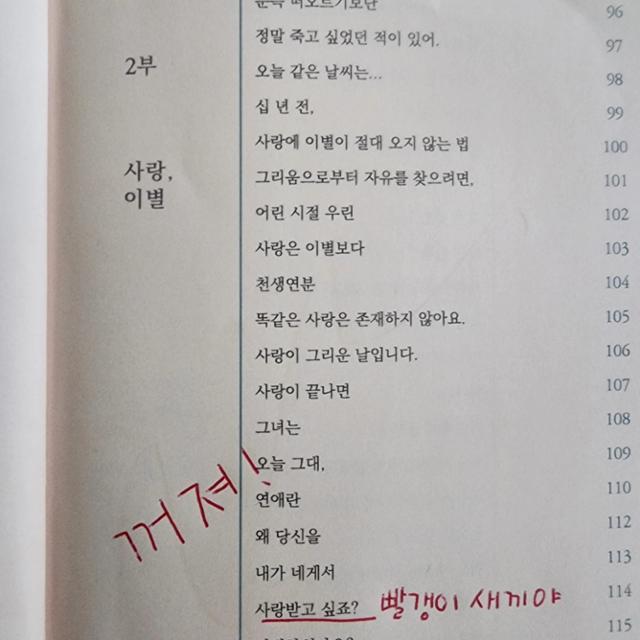 떠오르기보단 96
정말 죽고 싶었던 적이 있어. 97
2부
오늘 같은 날씨는... 98
십 년 전, 99
사랑에 이별이 절대 오지 않는 법 100
사랑,
이별
그리움으로부터 자유를 찾으려면, 101
어린 시절 우린 102
사랑은 이별보다 103
천생연분 104
똑같은 사랑은 존재하지 않아요. 105
사랑이 그리운 날입니다. 106
사랑이 끝나면 107
그녀는 108
오늘 그대, 109
꺼져!
연애란 110
왜 당신을 112
내가 네게서 113
사랑받고 싶죠? 빨갱이 새끼야 114
115